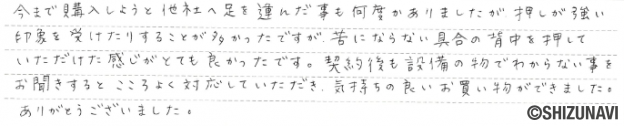 今まで購入しようと他社へ足を運んだ事も何度かありましたが、押しが強い
印象を受けたりすることが多かったですが、苦にならない具合の背中を押して
いただけた感じがとても良かったです。契約後も設備の物でわからない事を
お聞きすると こころよく対応していただき、気持ちの良いお買い物ができました。
ありがとうございました。
©SHIZUNAVI